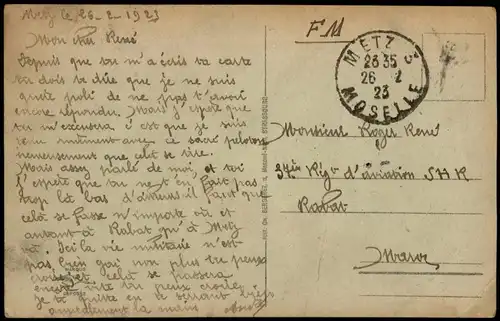 Metz le 26-2-1923
Mon cher René
Depuis que tu m'a écris ta carte
tu dois te dire que je ne suis
guère poli de ne pas t'avoir
encore répondu. Mais j'espère que
tu m'excusera c'est que je suis
ce sacré peloton
que cela se tire.
Mais assez parlé de moi, et toi
j'espère que tu ne t'en fait pas
trop là bas d'ailleurs il faut que
celà se passe n'importe où et
autant à Rabat qu'à Metz
va. Ici la vie militaire n'est
pas bien gai non plus tu peux
croire et celà se passera
encore vite tu peux croire
Je te quitte en te serrant bien
amicalement la main
F M
METZ
23 35
26 - 2
23
MOSELLE
Monsieur Roger René
37ème Rég d'aviation S H R
Rabat
Maroc